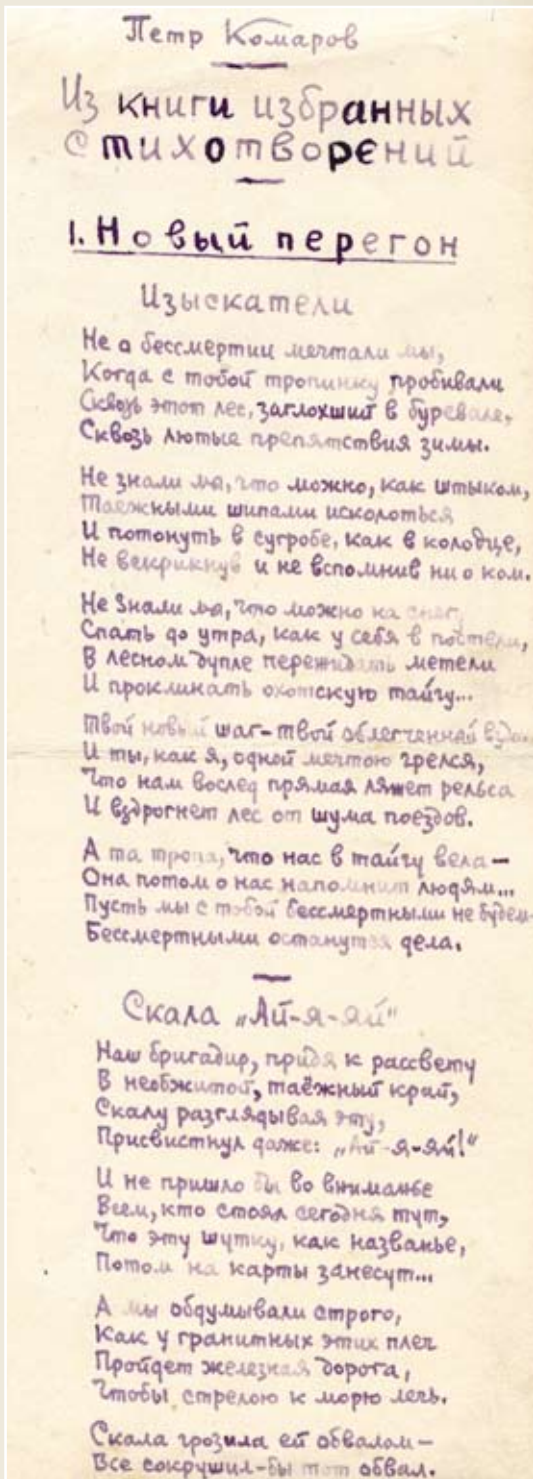 Петр Комаров
Из книги избранных
стихотворений
1. Новый перегон
Изыскатели
Не о бессмертии мечтали мы,
Когда с тобой тропинку пробивали
Сквозь этот лес, заглохший в буревале,
Сквозь лютые препятствия зимы.
Не знали мы, что можно, как штыком,
Таежными шипами исколоться
И потонуть в сугробе, как в колодце,
Не вскрикнув и не вспомнив ни о ком.
Не знали мы, что можно на снегу
Спать до утра, как у себя в постели,
В лесном дупле пережидать метели
И проклинать охотскую тайгу...
Твой новый шаг – твой облегченный
И ты, как я, одной мечтою грелся,
Что нам вослед прямая ляжет рельса
И вздрогнет лес от шума поездов.
А та тропа, что нас в тайгу вела –
Она потом о нас напомнит людям...
Пусть мы с тобой бессмертными не будем –
Бессмертными останутся дела.
Скала „Ай-я-яй"
Наш бригадир, придя к рассвету
В необжитой, таёжный край,
Скалу разглядывая эту,
Присвистнул даже: „Ай-я-яй!"
И не пришло бы во вниманье
Всем, кто стоял сегодня тут,
Что эту шутку, как названье,
Потом на карты занесут...
А мы обдумывали строго,
Как у гранитных этих плеч
Пройдет железная дорога,
Чтобы стрелою к морю лечь.
Скала грозила ей обвалом –
Все сокрушил-бы тот обвал.